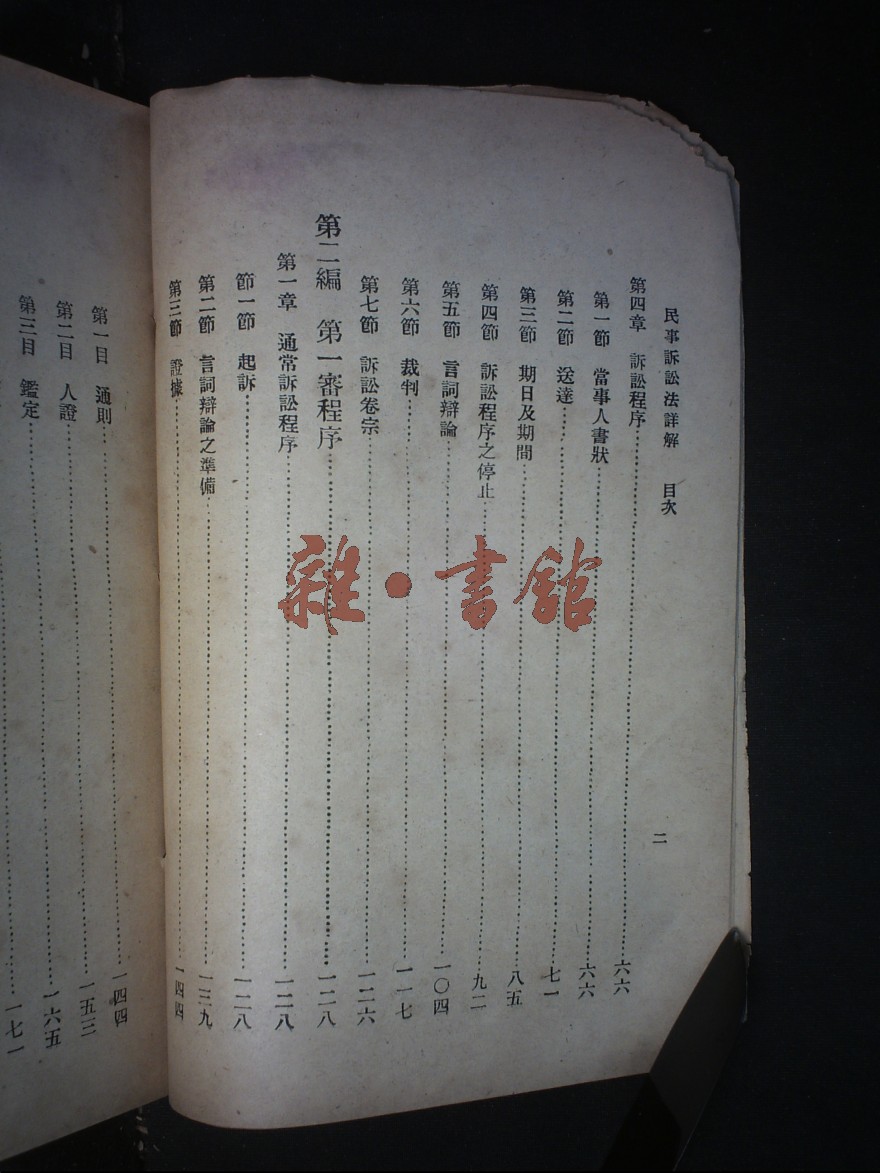 民事訴訟法詳解 目次 二
第四章 訴訟程序……六六
第一節 當事人書狀……六六
第二節 送達……七一
第三節 期日及期間……八五
第四節 訴訟程序之停止……九二
第五節 言詞辯論……一〇四
第六節 裁判……一一七
第七節 訴訟卷宗……一二六
第二編 第一審程序……一二八
第一章 通常訴訟程序……一二八
節一節 起訴……一二八
第二節 言詞辯論之準備……一三九
第三節 證據……一四四
第一目 通則……一四四
第二目 人證……一五三
第三目 鑑定……一六五
一七一
雜·書館